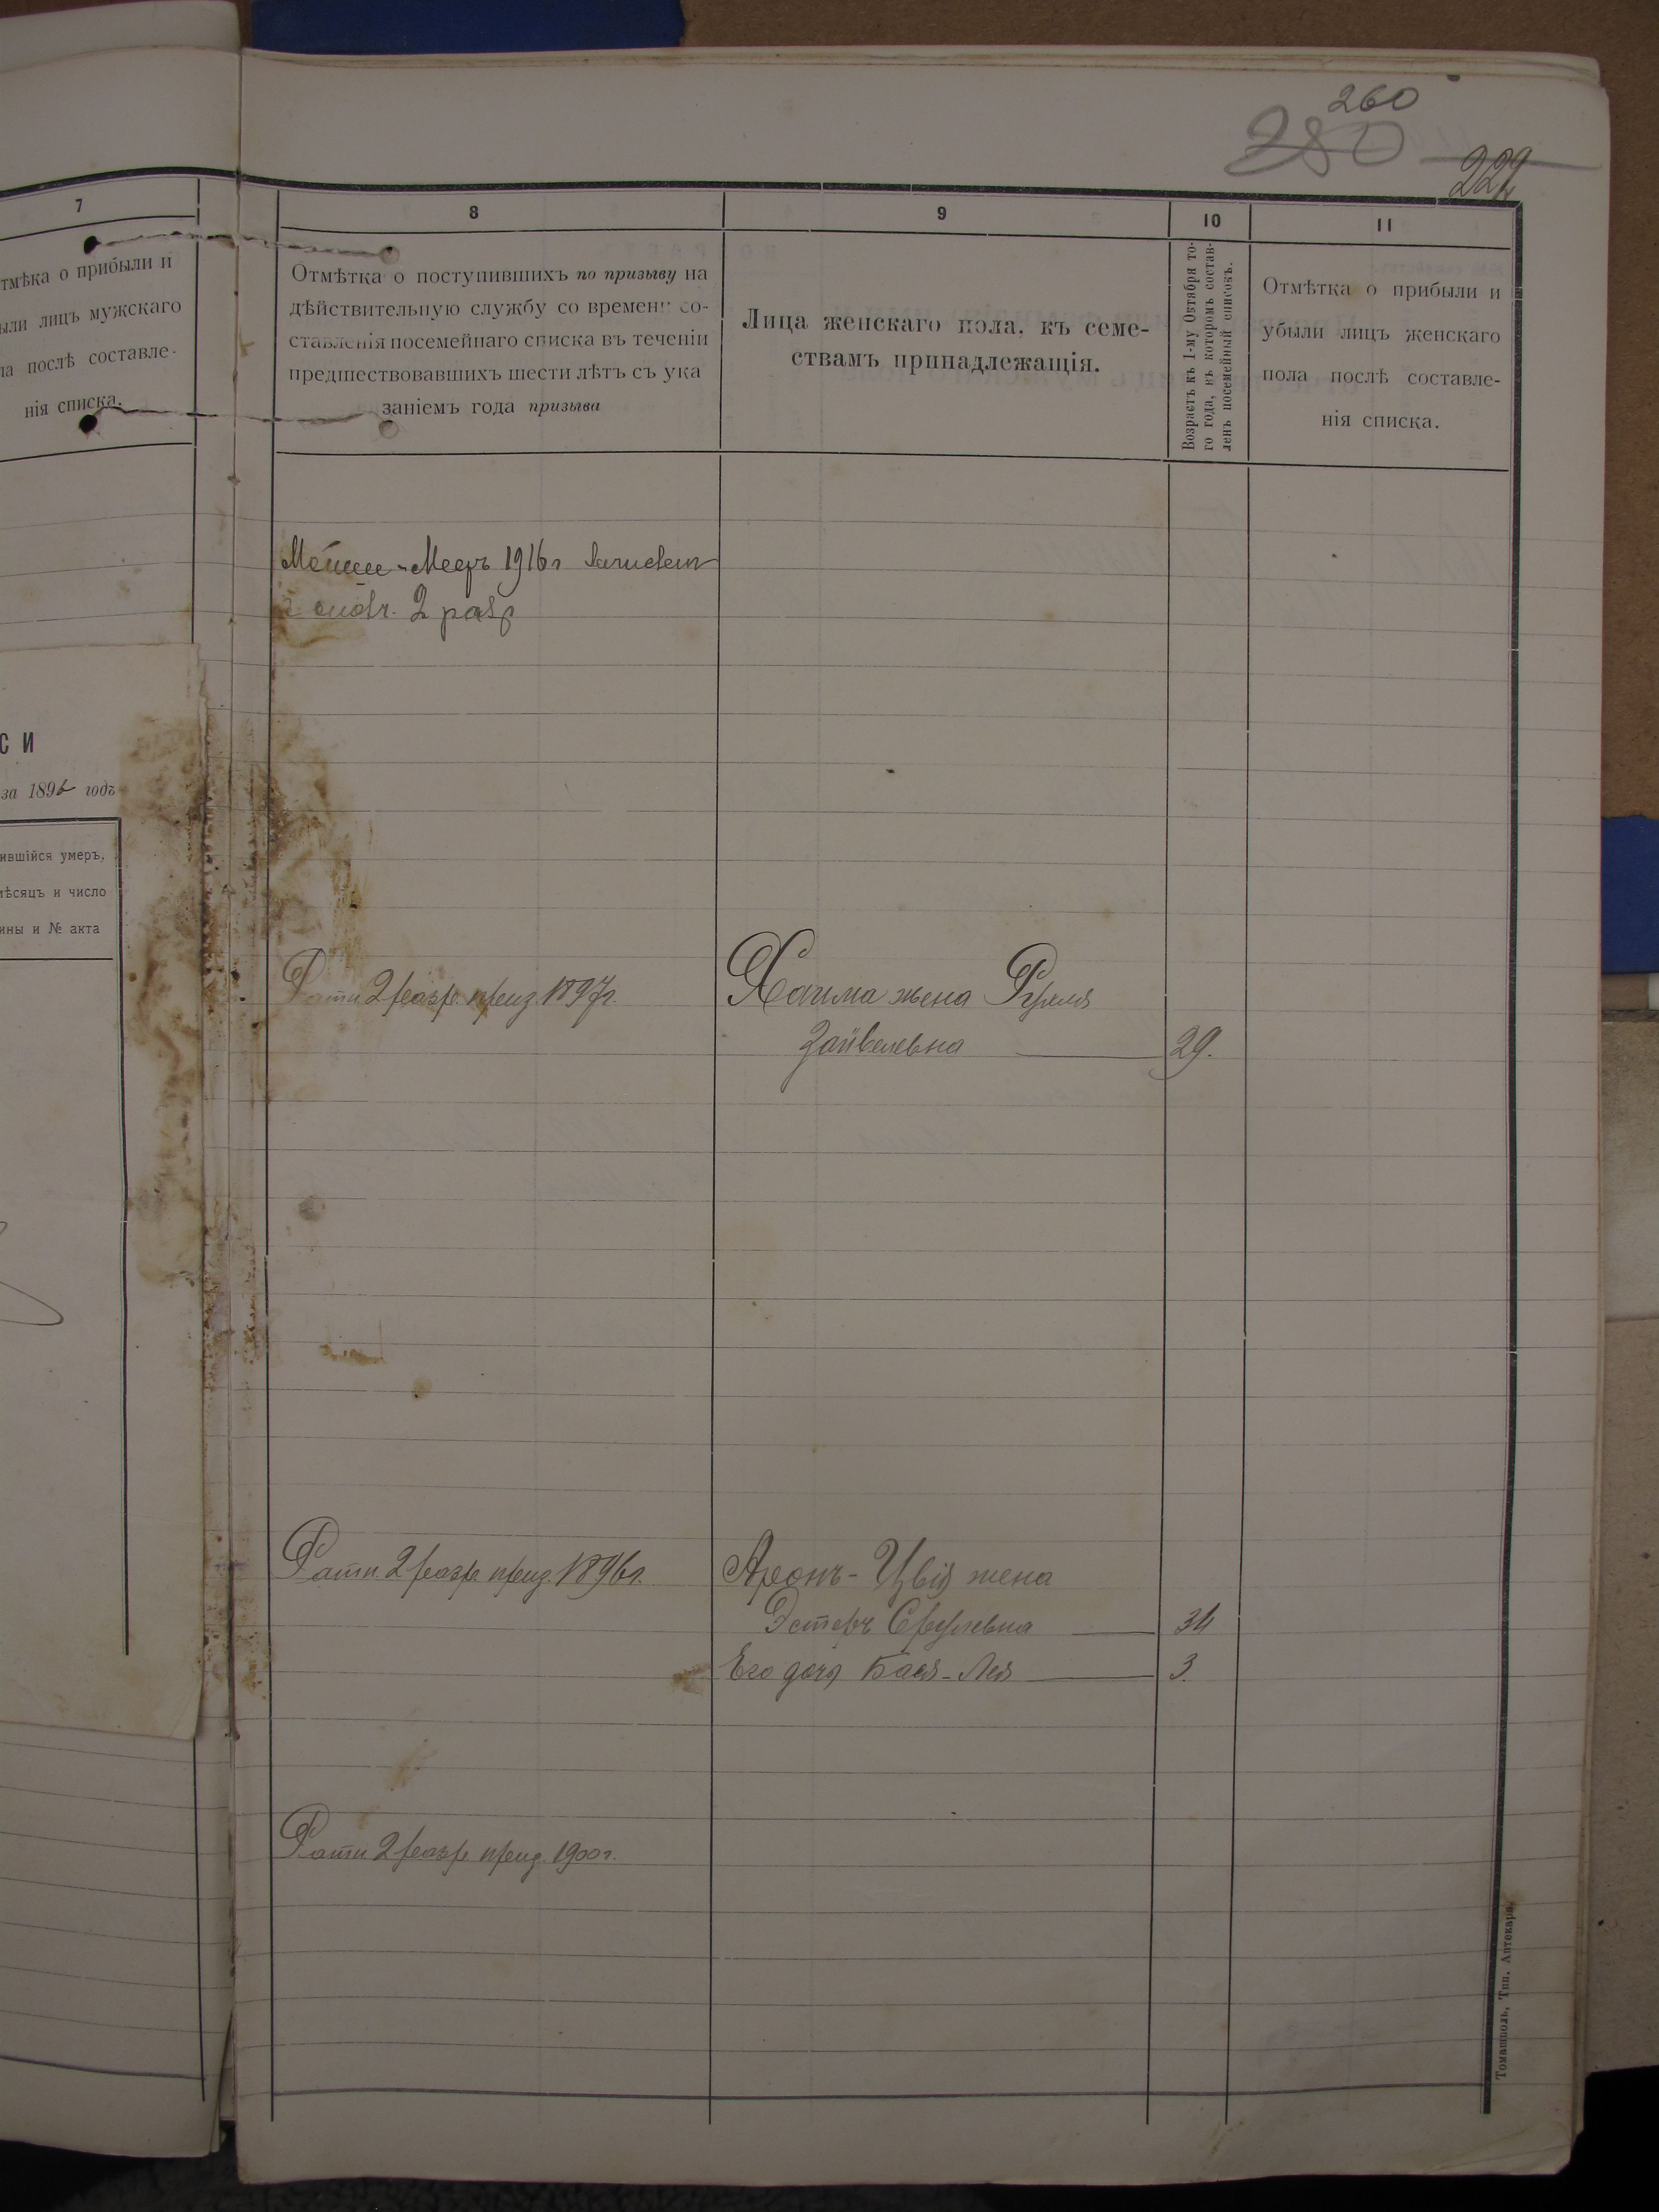 260
280
224
7
8
9
10
11
тмѣка о прибыли и
ыли лицъ мужскаго
ла послѣ составле-
нія списка.
Отмѣтка о поступившихъ по призыву на
дѣйствительную службу со времени со-
ставленія посемейнаго списка въ теченіи
предшествовавшихъ шести лѣтъ съ ука
заніемъ года призыва
Лица женскаго пола, къ семе-
ствамъ принадлежащія.
Возрастъ къ 1-му Октября то-
го года, въ которомъ состав-
ленъ посемейный списокъ.
Отмѣтка о прибыли и
убыли лицъ женскаго
пола послѣ составле-
нія списка.
Мееръ 1916г
2 разр
СИ
за 189 годъ
ившійся умеръ,
мѣсяцъ и число
ины и № акта
Ратн. 2 разр. приз. 1897г.
Хаима жена
Зайвелевна 29.
Ратн. 2 разр. приз. 1896г.
Аронъ-Цвія жена
Эстеръ Срулевна 34
Его дочь Бася-Лея 3.
Ратн 2 разр приз. 1900г.
Томашполь, Тип. Аптекаря.